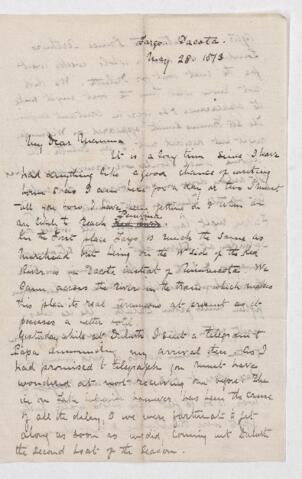 Fargo. Dacota.
May. 28th 1873
My Dear Mamma
It is a long time since I have
had anything like a good chance of writing
home & as I am here for a day or two I must
tell you how I have been getting on & when I am
likely to reach
In the first place Fargo is much the same as
Moorhead but being on the W side of the Red
River is in Dacota instead of Minnesota. We
came across the river in the train which makes
this place its real terminus at present as it
possesses a better
Yesterday while at Duluth I sent a telegram to
Papa announcing my arrival there. As I
had promised to telegraph you must have
wondered at not receiving one before. The
ice on Lake Superior however has been the cause
of all the delay, & we were fortunate to get
along as soon as we did coming into Duluth
the second boat of the season.